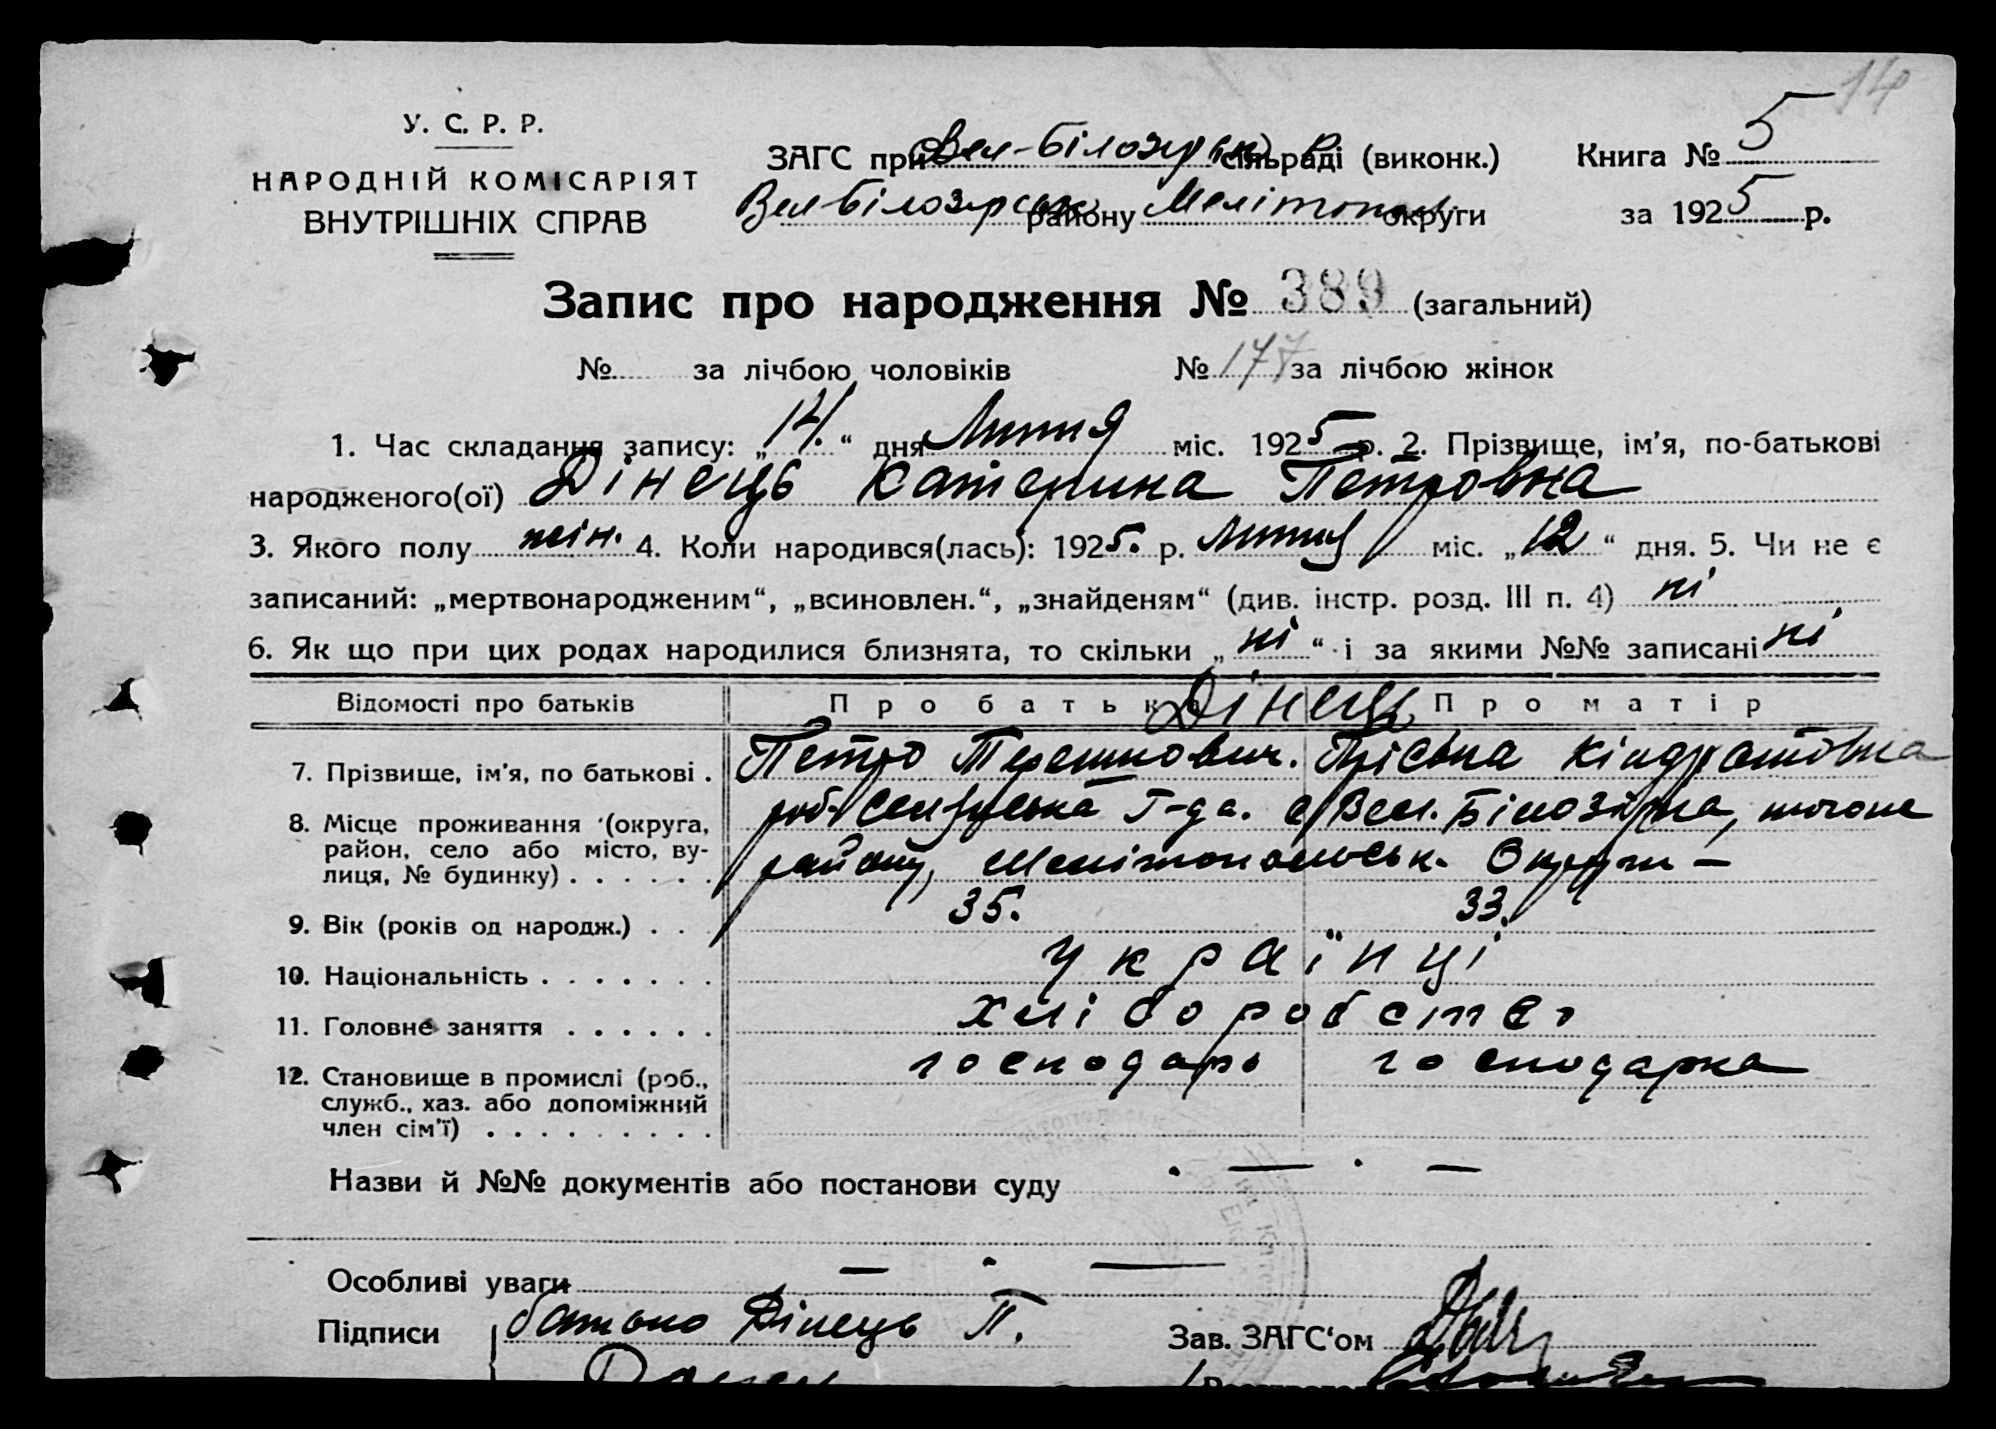 14
У. С. Р. Р.
НАРОДНІЙ КОМІСАРІЯТ
ВНУТРІШНІХ СПРАВ
ЗАГС при Вел-Білозірськ сільраді (виконк.)
Книга № 5
Вел Білозірськ району Мелітополь округи
за 1925 р.
Запис про народження № 389 (загальний)
№ за лічбою чоловіків № 177 за лічбою жінок
1. Час складання запису: „14.“ дня Лютня міс. 1925 р. 2. Прізвище, ім'я, по-батькові
народженого(ої) Дінець Катерина Петровна
3. Якого полу жін. 4. Коли народився(лась): 1925. р. Лютня міс. „12“ дня. 5. Чи не є
записаний: „мертвонародженим“, „всиновлен.“, „знайденям“ (див. інстр. розд. III п. 4) ні
6. Як що при цих родах народилися близнята, то скільки „ні“ і за якими №№ записані ні
Відомості про батьків Про батька Дінець Про матір
7. Прізвище, ім'я, по батькові . Петро Терешкович. Пріська Кіндратовна
8. Місце проживання (округа, район, село або місто, вулиця, № будинку) . . . . . .
Г-да. с. Вел. Білозірка, того ж
району, Мелітопольськ. Округи —
9. Вік (років од народж.) . . . 35. 33.
10. Національність . . . . . . . українці
11. Головне заняття . . . . . . хліборобство
12. Становище в промислі (роб., служб., хаз. або допоміжний член сім'ї) . . . . . . . . .
господарь господарка
Назви й №№ документів або постанови суду . — . —
Особливі уваги — . —
Підписи батько Дінець П. Зав. ЗАГС'ом